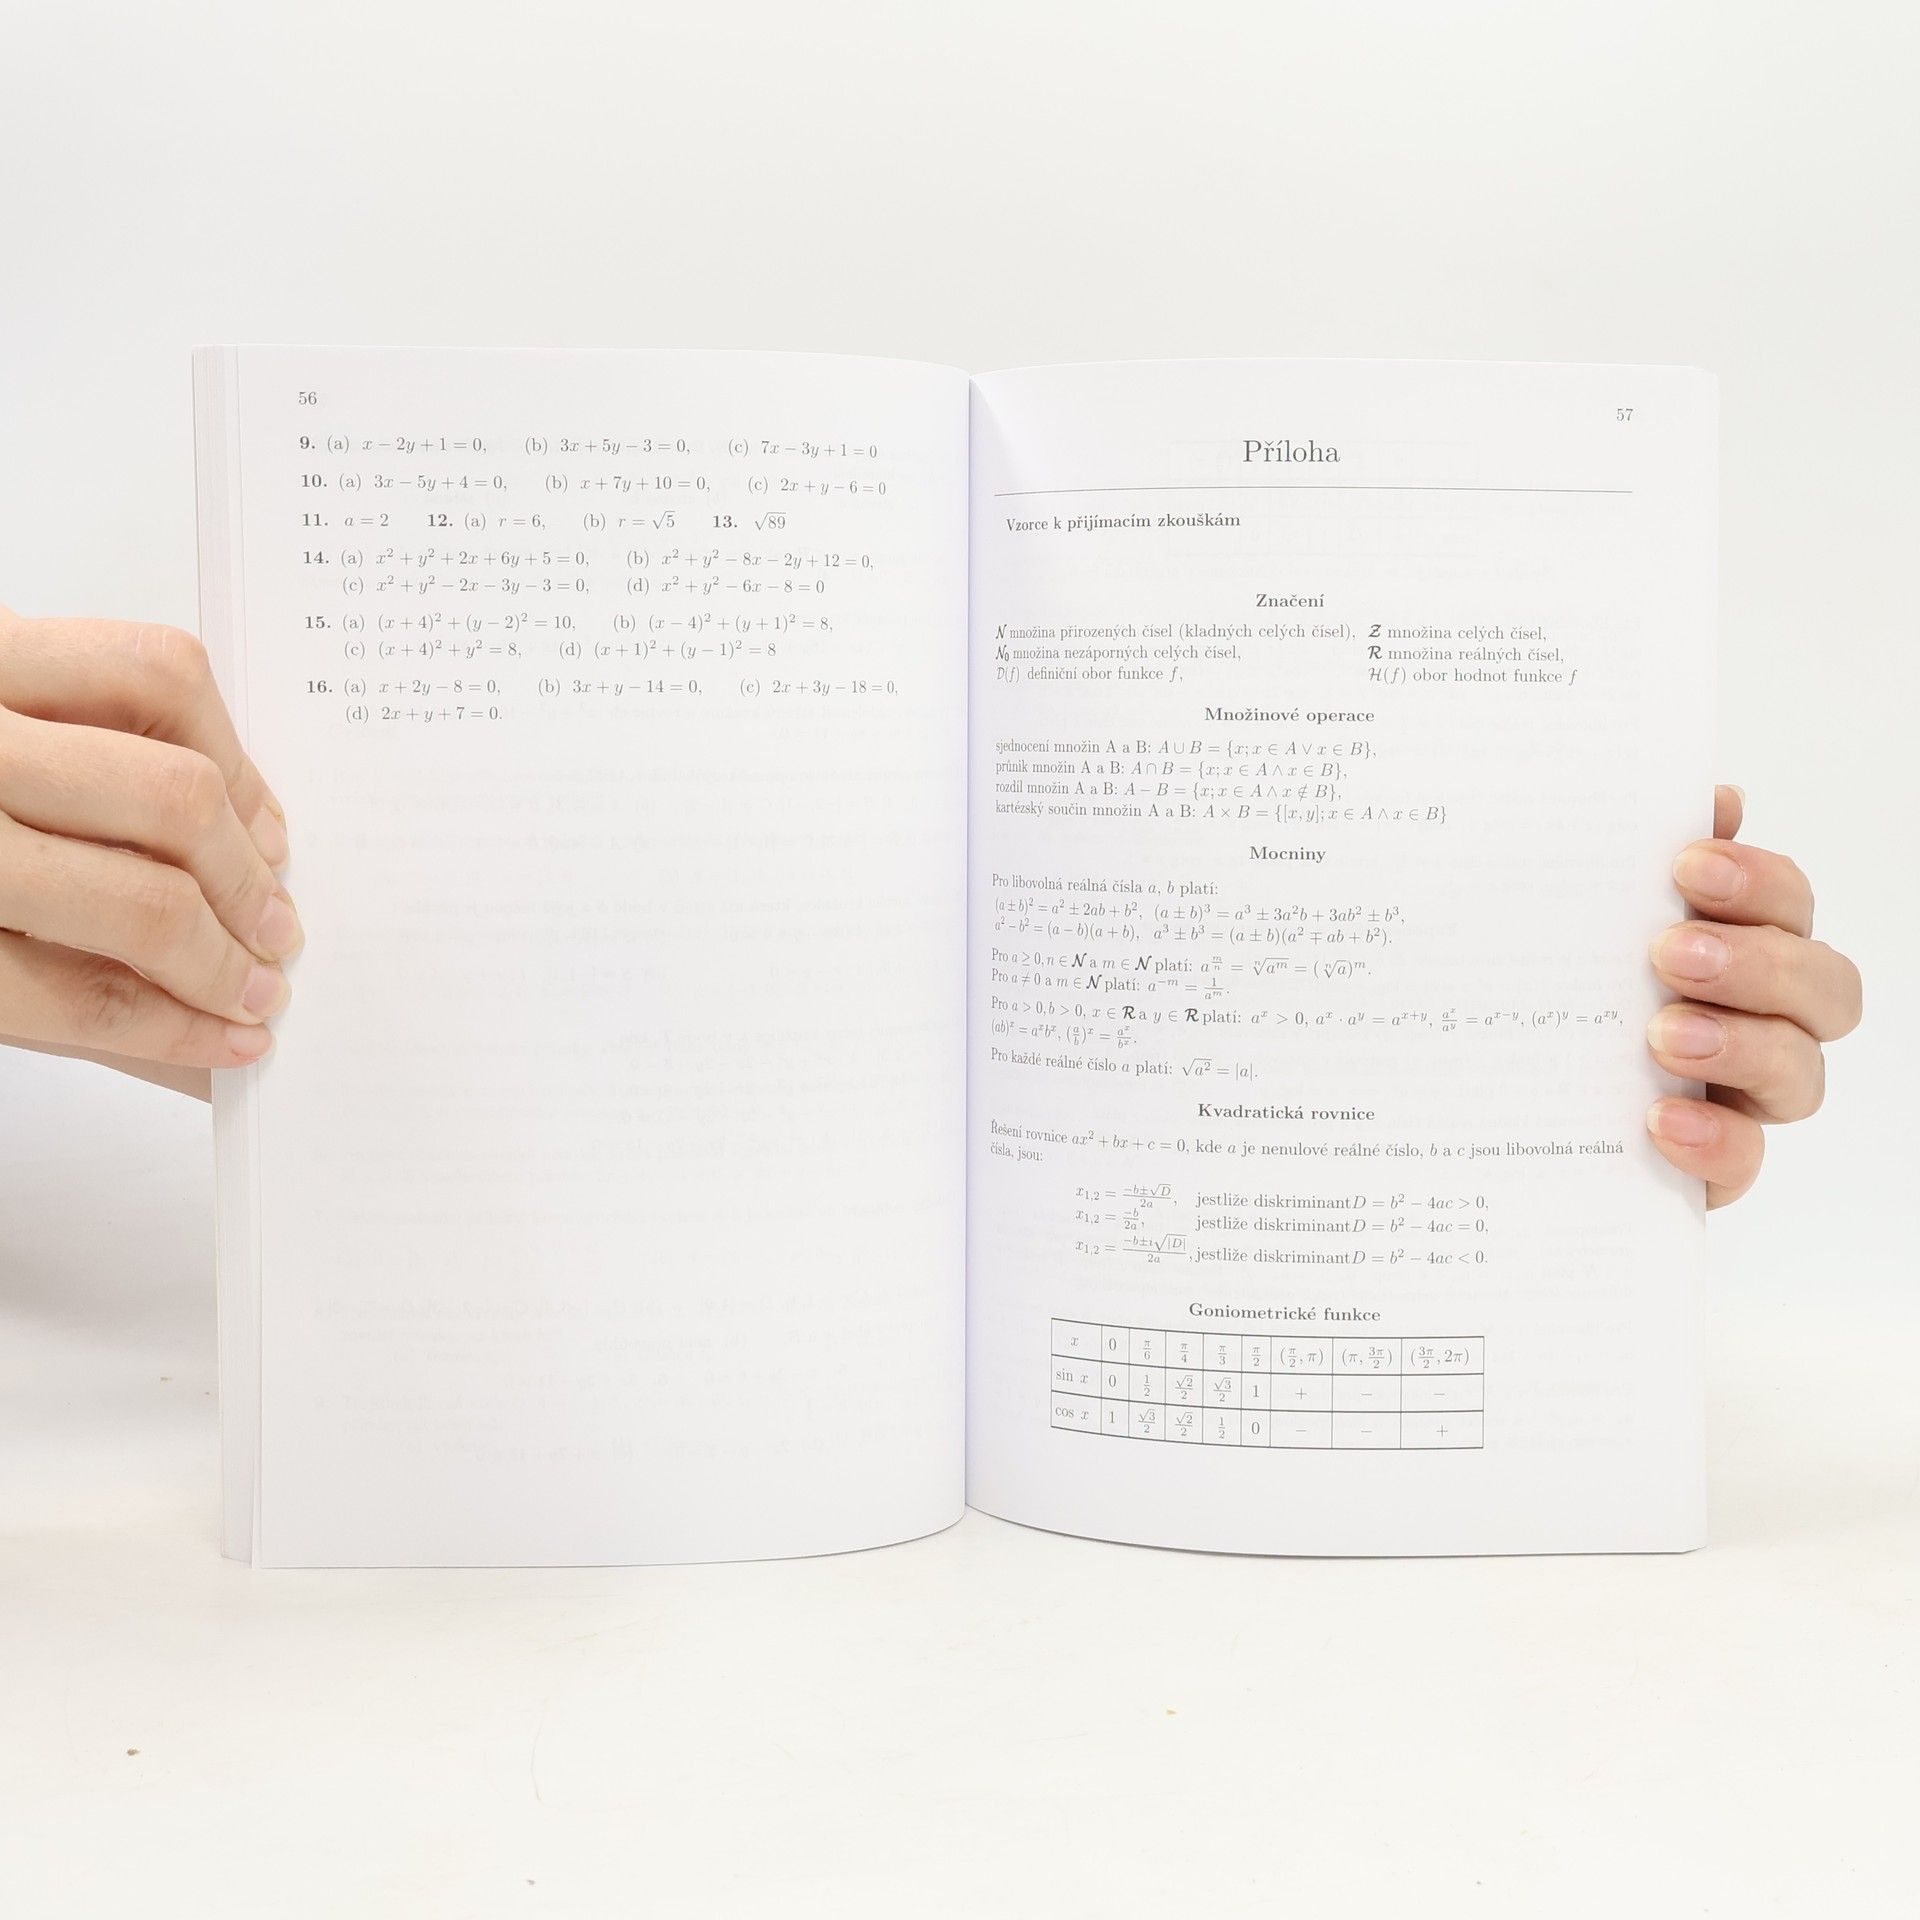 56
9. (a) x − 2y + 1 = 0, (b) 3x + 5y − 3 = 0, (c) 7x − 3y + 1 = 0
10. (a) 3x − 5y + 4 = 0, (b) x + 7y + 10 = 0, (c) 2x + y − 6 = 0
11. a = 2 12. (a) r = 6, (b) r = √5 13. √89
14. (a) x² + y² + 2x + 6y + 5 = 0, (b) x² + y² − 8x − 2y + 12 = 0,
(c) x² + y² − 2x − 3y − 3 = 0, (d) x² + y² − 6x − 8 = 0
15. (a) (x + 4)² + (y − 2)² = 10, (b) (x − 4)² + (y + 1)² = 8,
(c) (x + 4)² + y² = 8, (d) (x + 1)² + (y − 1)² = 8
16. (a) x + 2y − 8 = 0, (b) 3x + y − 14 = 0, (c) 2x + 3y − 18 = 0,
(d) 2x + y + 7 = 0.
57
Příloha
Vzorce k přijímacím zkouškám
Značení
N množina přirozených čísel (kladných celých čísel), Z množina celých čísel,
N₀ množina nezáporných celých čísel, R množina reálných čísel,
D(f) definiční obor funkce f, H(f) obor hodnot funkce f
Množinové operace
sjednocení množin A a B: A ∪ B = {x; x ∈ A ∨ x ∈ B},
průnik množin A a B: A ∩ B = {x; x ∈ A ∧ x ∈ B},
rozdíl množin A a B: A − B = {x; x ∈ A ∧ x ∉ B},
kartézský součin množin A a B: A × B = {[x, y]; x ∈ A ∧ x ∈ B}
Mocniny
Pro libovolná reálná čísla a, b platí:
(a ± b)² = a² ± 2ab + b², (a ± b)³ = a³ ± 3a²b + 3ab² ± b³,
a² − b² = (a − b)(a + b), a³ ± b³ = (a ± b)(a² ∓ ab + b²).
Pro a ≥ 0, n ∈ N a m ∈ N platí: a^(m/n) = ⁿ√(a^m) = (ⁿ√a)^m.
Pro a ≠ 0 a m ∈ N platí: a^(−m) = 1/a^m.
Pro a > 0, b > 0, x ∈ R a y ∈ R platí: a^x > 0, a^x · a^y = a^(x+y), a^x/a^y = a^(x−y), (a^x)^y = a^(xy),
(ab)^x = a^x b^x, (a/b)^x = a^x/b^x.
Pro každé reálné číslo a platí: √(a²) = |a|.
Kvadratická rovnice
Řešení rovnice ax² + bx + c = 0, kde a je nenulové reálné číslo, b a c jsou libovolná reálná
čísla, jsou:
x₁,₂ = (−b±√D)/2a, jestliže diskriminant D = b² − 4ac > 0,
x₁,₂ = −b/2a, jestliže diskriminant D = b² − 4ac = 0,
x₁,₂ = (−b±i√|D|)/2a, jestliže diskriminant D = b² − 4ac < 0.
Goniometrické funkce
x 0 π/6 π/4 π/3 π/2 (π/2, π) (π, 3π/2) (3π/2, 2π)
sin x 0 1/2 √2/2 √3/2 1 + − −
cos x 1 √3/2 √2/2 1/2 0 − − +